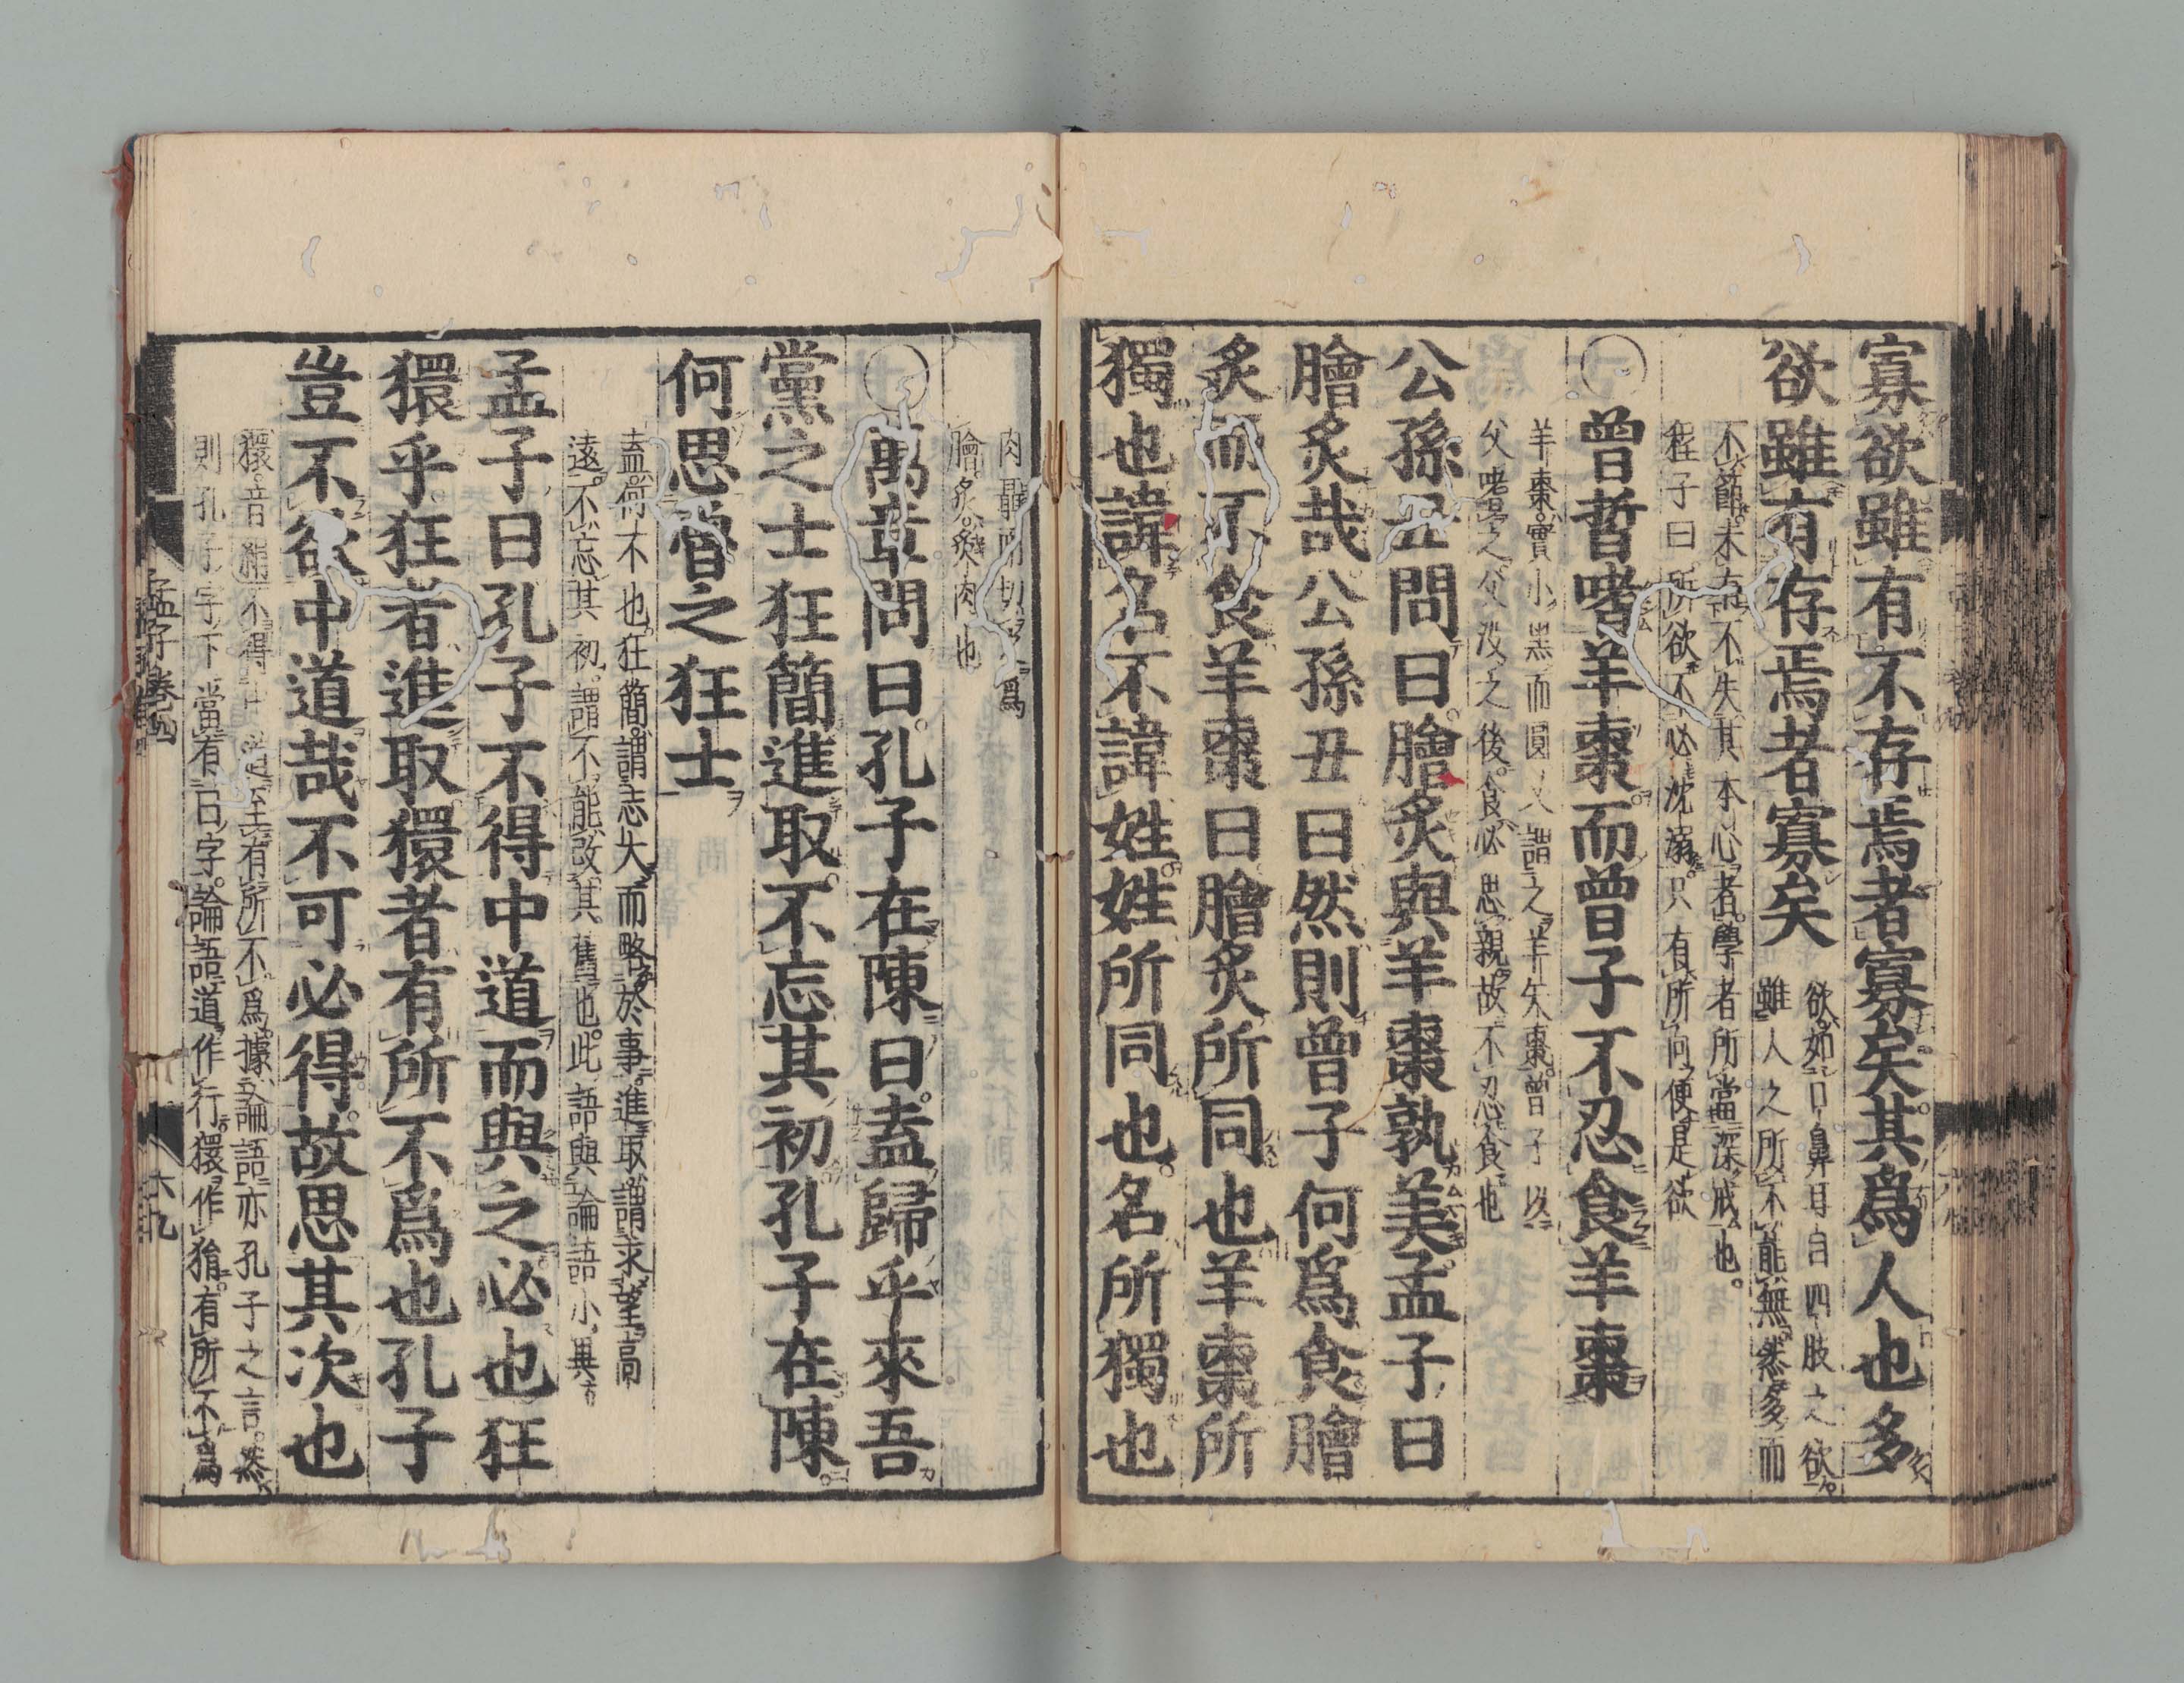 寡欲雖有不存焉者寡矣其爲人也多
欲雖有存焉者寡矣
欲如口鼻耳目四肢之欲
雖人之所不能無然多而
不節未有不失其本心者學者所當深戒也
程子曰所欲不必沈溺只有所向便是欲
○曾晳嗜羊棗而曾子不忍食羊棗
羊棗實小黒而圓又謂之羊矢棗曾子以
父嗜之父没之後食必思親故不忍食也
公孫丑問曰膾炙與羊棗孰美孟子曰
膾炙哉公孫丑曰然則曾子何爲食膾
炙而不食羊棗曰膾炙所同也羊棗所
獨也諱名不諱姓姓所同也名所獨也
肉聶而切爲
膾炙炙肉也
○萬章問曰孔子在陳曰盍歸乎來吾
黨之士狂簡進取不忘其初孔子在陳
何思魯之狂士
盍何不也狂簡謂志大而略於事進取謂求望高
遠不忘其初謂不能改其舊也此語與論語小異
孟子曰孔子不得中道而與之必也狂
獧乎狂者進取獧者有所不爲也孔子
豈不欲中道哉不可必得故思其次也
獧音絹不得中道至有所不爲據論語亦孔子之言然
則孔子字下當有曰字論語道作行獧作狷有所不爲
孟子卷四
六九